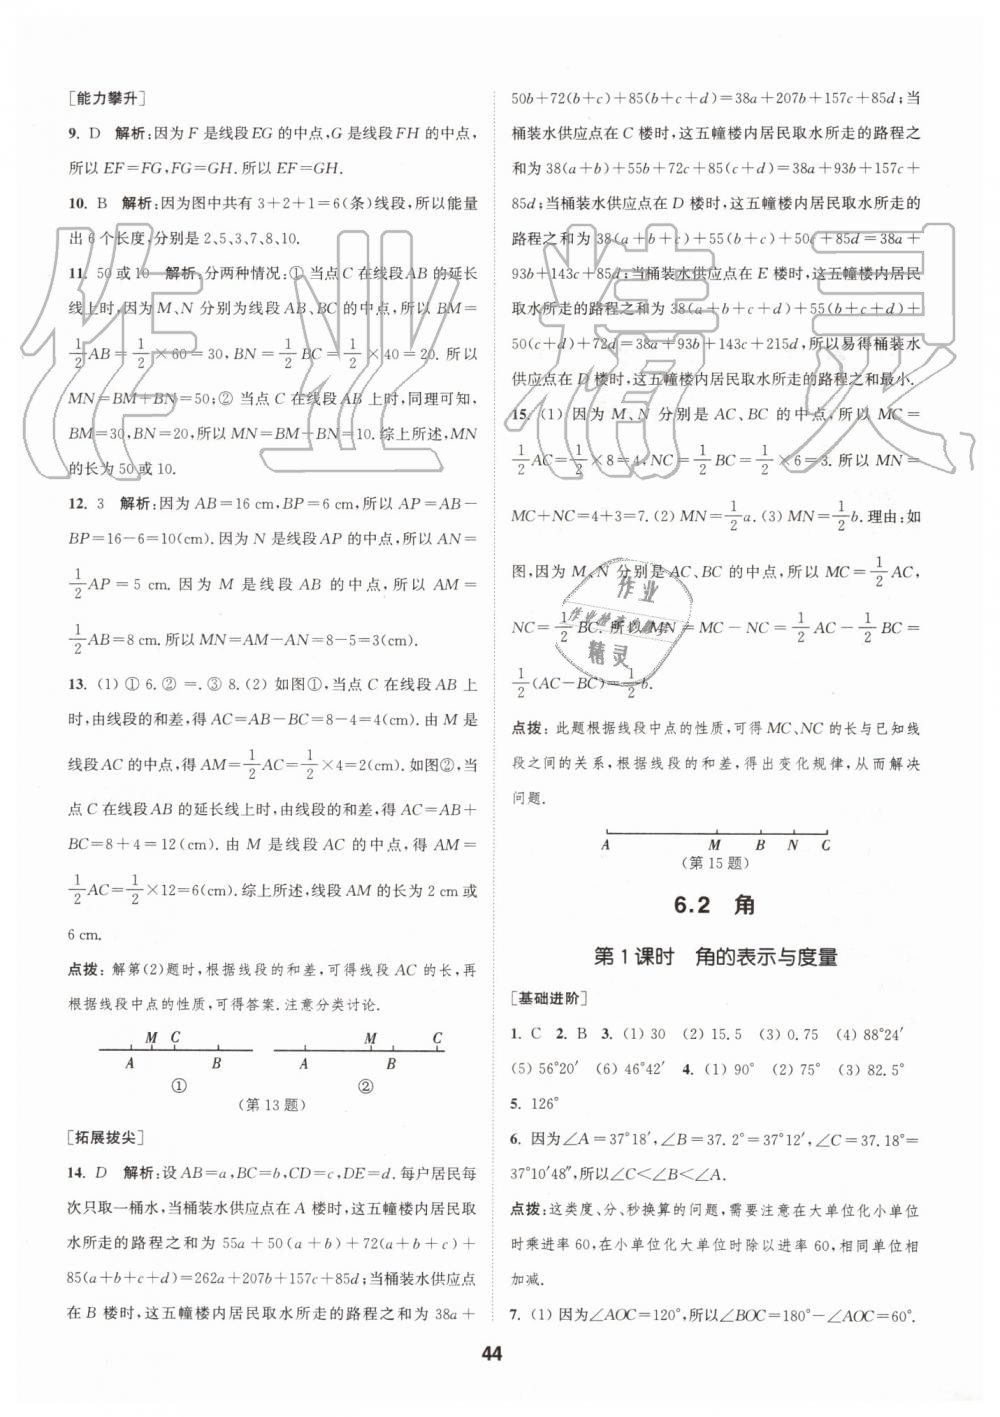 [能力攀升]
9. D 解析:因为 F 是线段EG 的中点,G 是线段 FH 的中点,
所以 EF=FG,FG=GH.所以 EF=GH.
10. B 解析:因为图中共有 3+2+1=6(条)线段,所以能量
出 6 个长度,分别是 2、5、3、7、8、10.
11. 50 或 10 解析:分两种情况:① 当点 C 在线段 AB 的延长
线上时,因为 M、N 分别为线段 AB、BC 的中点,所以 BM=
1/2 AB=1/2×60=30,BN=1/2 BC=1/2×40=20. 所以
MN=BM+BN=50;② 当点 C 在线段 AB 上时,同理可知,
BM=30,BN=20,所以 MN=BM-BN=10.综上所述,MN
的长为 50 或 10.
12. 3 解析:因为 AB=16 cm,BP=6 cm,所以 AP=AB-
BP=16-6=10(cm). 因为 N 是线段 AP 的中点,所以 AN=
1/2 AP=5 cm. 因为 M 是线段 AB 的中点,所以 AM=
1/2 AB=8 cm.所以 MN=AM-AN=8-5=3(cm).
13. (1) ① 6. ② =. ③ 8. (2) 如图①,当点 C 在线段 AB 上
时,由线段的和差,得 AC=AB-BC=8-4=4(cm). 由 M 是
线段 AC 的中点,得 AM=1/2 AC=1/2×4=2(cm). 如图②,当
点 C 在线段 AB 的延长线上时,由线段的和差,得 AC=AB+
BC=8+4=12(cm). 由 M 是线段 AC 的中点,得 AM=
1/2 AC=1/2×12=6(cm). 综上所述,线段 AM 的长为 2 cm 或
6 cm.
点拨:解第(2)题时,根据线段的和差,可得线段 AC 的长,再
根据线段中点的性质,可得答案.注意分类讨论.
M C
A B
①
M C
A B
②
(第 13 题)
[拓展拔尖]
14. D 解析:设 AB=a,BC=b,CD=c,DE=d. 每户居民每
次只取一桶水,当桶装水供应点在 A 楼时,这五幢楼内居民取
水所走的路程之和为 55a+50(a+b)+72(a+b+c)+
85(a+b+c+d)=262a+207b+157c+85d;当桶装水供应点
在 B 楼时,这五幢楼内居民取水所走的路程之和为 38a+
50b+72(b+c)+85(b+c+d)=38a+207b+157c+85d;当
桶装水供应点在 C 楼时,这五幢楼内居民取水所走的路程之
和为 38(a+b)+55b+72c+85(c+d)=38a+93b+157c+
85d;当桶装水供应点在 D 楼时,这五幢楼内居民取水所走的
路程之和为 38(a+b+c)+55(b+c)+50c+85d=38a+
93b+143c+85d;当桶装水供应点在 E 楼时,这五幢楼内居民
取水所走的路程之和为 38(a+b+c+d)+55(b+c+d)+
50(c+d)+72d=38a+93b+143c+215d,所以易得桶装水
供应点在 D 楼时,这五幢楼内居民取水所走的路程之和最小.
15. (1) 因为 M、N 分别是 AC、BC 的中点,所以 MC=
1/2 AC=1/2×8=4,NC=1/2 BC=1/2×6=3. 所以 MN=
MC+NC=4+3=7. (2) MN=1/2 a. (3) MN=1/2 b. 理由:如
图,因为 M、N 分别是 AC、BC 的中点,所以 MC=1/2 AC,
NC=1/2 BC. 所以 MN=MC-NC=1/2 AC-1/2 BC=
1/2(AC-BC)=1/2 b.
点拨:此题根据线段中点的性质,可得 MC、NC 的长与已知线
段之间的关系,根据线段的和差,得出变化规律,从而解决
问题.
A M B N C
(第 15 题)
6.2 角
第 1 课时 角的表示与度量
[基础进阶]
1. C 2. B 3. (1) 30 (2) 15.5 (3) 0.75 (4) 88°24′
(5) 56°20′ (6) 46°42′ 4. (1) 90° (2) 75° (3) 82.5°
5. 126°
6. 因为∠A=37°18′,∠B=37.2°=37°12′,∠C=37.18°=
37°10′48″,所以∠C<∠B<∠A.
点拨:这类度、分、秒换算的问题,需要注意在大单位化小单位
时乘进率 60,在小单位化大单位时除以进率 60,相同单位相
加减.
7. (1) 因为∠AOC=120°,所以∠BOC=180°-∠AOC=60°.
44
作业精灵
作业
作业检查
精灵